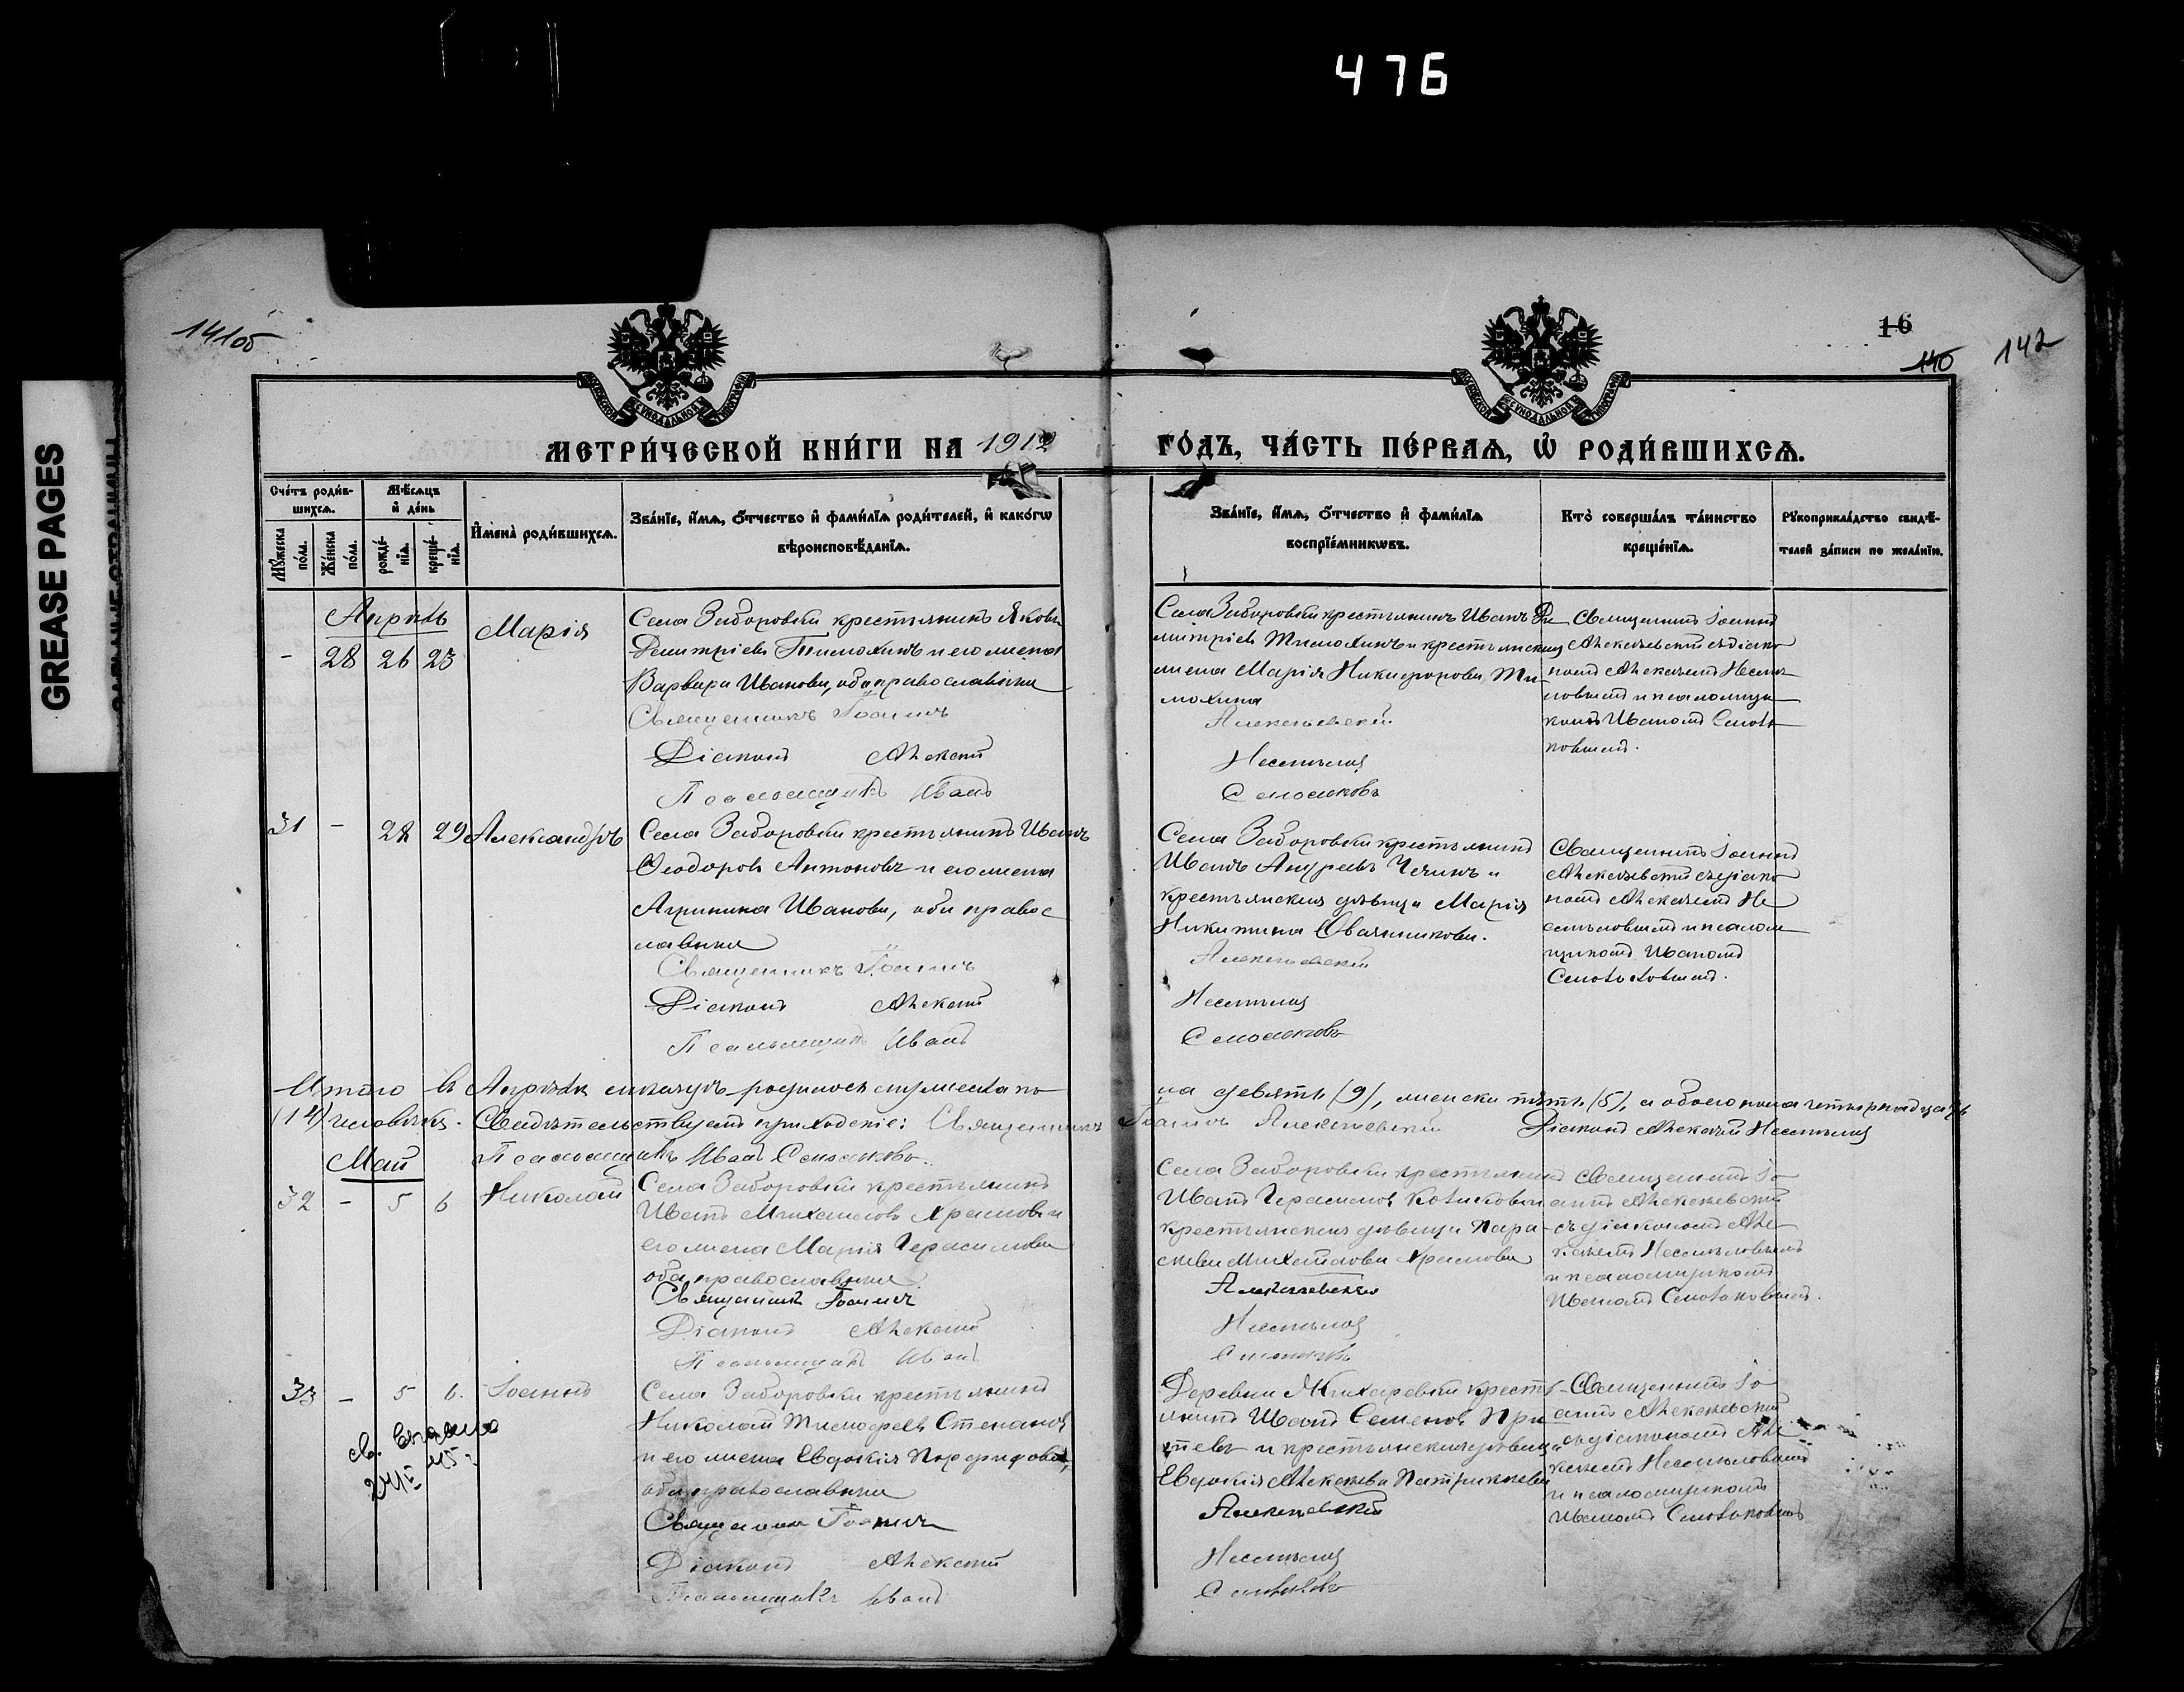 476
GREASE PAGES
141об
16
140
142
МЕТРИ́ЧЕСКОЙ КНИ́ГИ НА 1912
ГО́ДЪ, ЧА́СТЬ ПЕ́РВАѦ, Ѡ҆ РОДИ́ВШИХСѦ.
Сче́тъ роди́в-
шихсѧ.
Мꙋ́жеска по́ла.
Же́нска по́ла.
Мѣ́сѧцъ
и҆ де́нь
рожде́-нїѧ.
креще́-нїѧ.
И҆мена̀ роди́вшихсѧ.
Зва́нїе, и҆́мѧ, ѻ҆́тчество и҆ фами́лїѧ роди́телей, и҆ како́гѡ
вѣроисповѣ́данїѧ.
Зва́нїе, и҆́мѧ, ѻ҆́тчество и҆ фами́лїѧ
воспрїе́мникѡвъ.
Кто̀ соверша́лъ та́инство
креще́нїѧ.
Рꙋкоприкла́дство свидѣ́-
телей за́писи по жела́нїю.
Апрѣль
- 28 26 23
Марія
Села Заборовки крестьянинъ Яковъ
Димитріевъ Тимохинъ и его жена
Варвара Иванова, оба православные
Священникъ Іоаннъ
Діаконъ Алексѣй
Псаломщикъ Иванъ
Села Заборовки крестьянинъ Иванъ Ди
митріевъ Тимохинъ и крестьянская
жена Марія Никифорова Ти-
мохина
Алексѣевскій
Несмѣловъ
Смольковъ
Священникъ Іоаннъ
Алексѣевскій съ діако
номъ Алексѣемъ Несмѣ
ловымъ и псаломщи
комъ Иваномъ Смоль
ковымъ.
31 - 28 29 Александръ
Села Заборовки крестьянинъ Иванъ
Ѳеодоровъ Антоновъ и его жена
Агрипина Иванова, оба правос
лавные
Священникъ Іоаннъ
Діаконъ Алексѣй
Псаломщикъ Иванъ
Села Заборовки крестьянинъ
Иванъ Андреевъ и
крестьянская дѣвица Марія
Никитина Овчинникова.
Алексѣевскій
Несмѣловъ
Смольковъ
Священникъ Іоаннъ
Алексѣевскій съ діако
номъ Алексѣемъ Не
смѣловымъ и псалом
щикомъ Иваномъ
Смольковымъ.
Итого въ Апрѣлѣ мѣсяцѣ родилось мужеска по
ла девять (9), женска пять (5), а обоего пола четырнадцать
(14) человѣкъ. Свидѣтельствуемъ приложеніе: Священникъ Іоаннъ Алексѣевскій Діаконъ Алексѣй Несмѣловъ
Псаломщикъ Иванъ Смольковъ.
Май
32 - 5 6 Николай
Села Заборовки крестьянинъ
Иванъ Михаиловъ Храмовъ и
его жена Марія Герасимова
оба православные
Священникъ Іоаннъ
Діаконъ Алексѣй
Псаломщикъ Иванъ
Села Заборовки крестьянинъ
Иванъ Герасимовъ и
крестьянская дѣвица Пара-
скева Михайлова Храмова
Алексѣевскій
Несмѣловъ
Смольковъ
Священникъ Іо
аннъ Алексѣевскій
съ діакономъ Але
ксѣемъ Несмѣловымъ
и псаломщикомъ
Иваномъ Смольковымъ.
33 - 5 6. Іоаннъ
Села Заборовки крестьянинъ
Николай Тимофеевъ Степановъ
и его жена Евдокія Порфирова,
оба православные
Священникъ Іоаннъ
Діаконъ Алексѣй
Псаломщикъ Иванъ
Деревни Жихаревки кресть-
янинъ Иванъ Семеновъ
и крестьянская дѣвица
Евдокія Алексѣева Патрикѣева
Алексѣевскій
Несмѣловъ
Смольковъ
Священникъ Іо
аннъ Алексѣевскій
съ діакономъ Але
ксѣемъ Несмѣловымъ
и псаломщикомъ
Иваномъ Смольковымъ